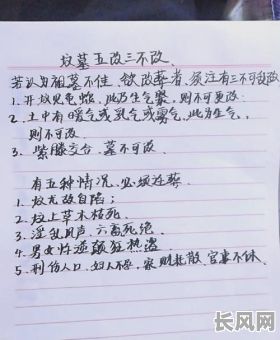 坟墓五改三不改、
若认为祖墓不佳、欲改葬者、须注有三不可改改
1. 开坟见龟蛇、此乃生气聚、则不可更改
2. 土中有暖气或乳气或雾气、此为生气、
则不可改
3. 紫藤交合、墓不可改、
有五种情况、必须迁葬、
1. 坟龙故自陷；
2. 坟上草木枯死、
3. 淫乱风声、六畜死绝、
4. 男女忤逆颠狂热盗
5. 刑伤人口、妇人不孕、家财耗散、官事不休、
长风网
cffw.net